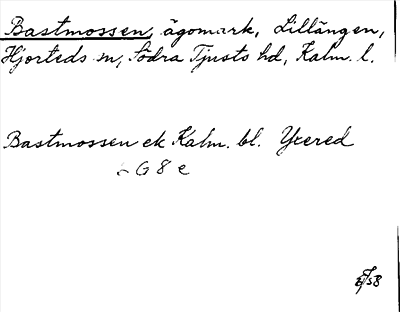 Bastmossen, ägomark, Lillängen,
Hjorteds sn, Södra Tjusts hd, Kalm. l.
Bastmossen ek Kalm. bl. Yxered
G 8 e